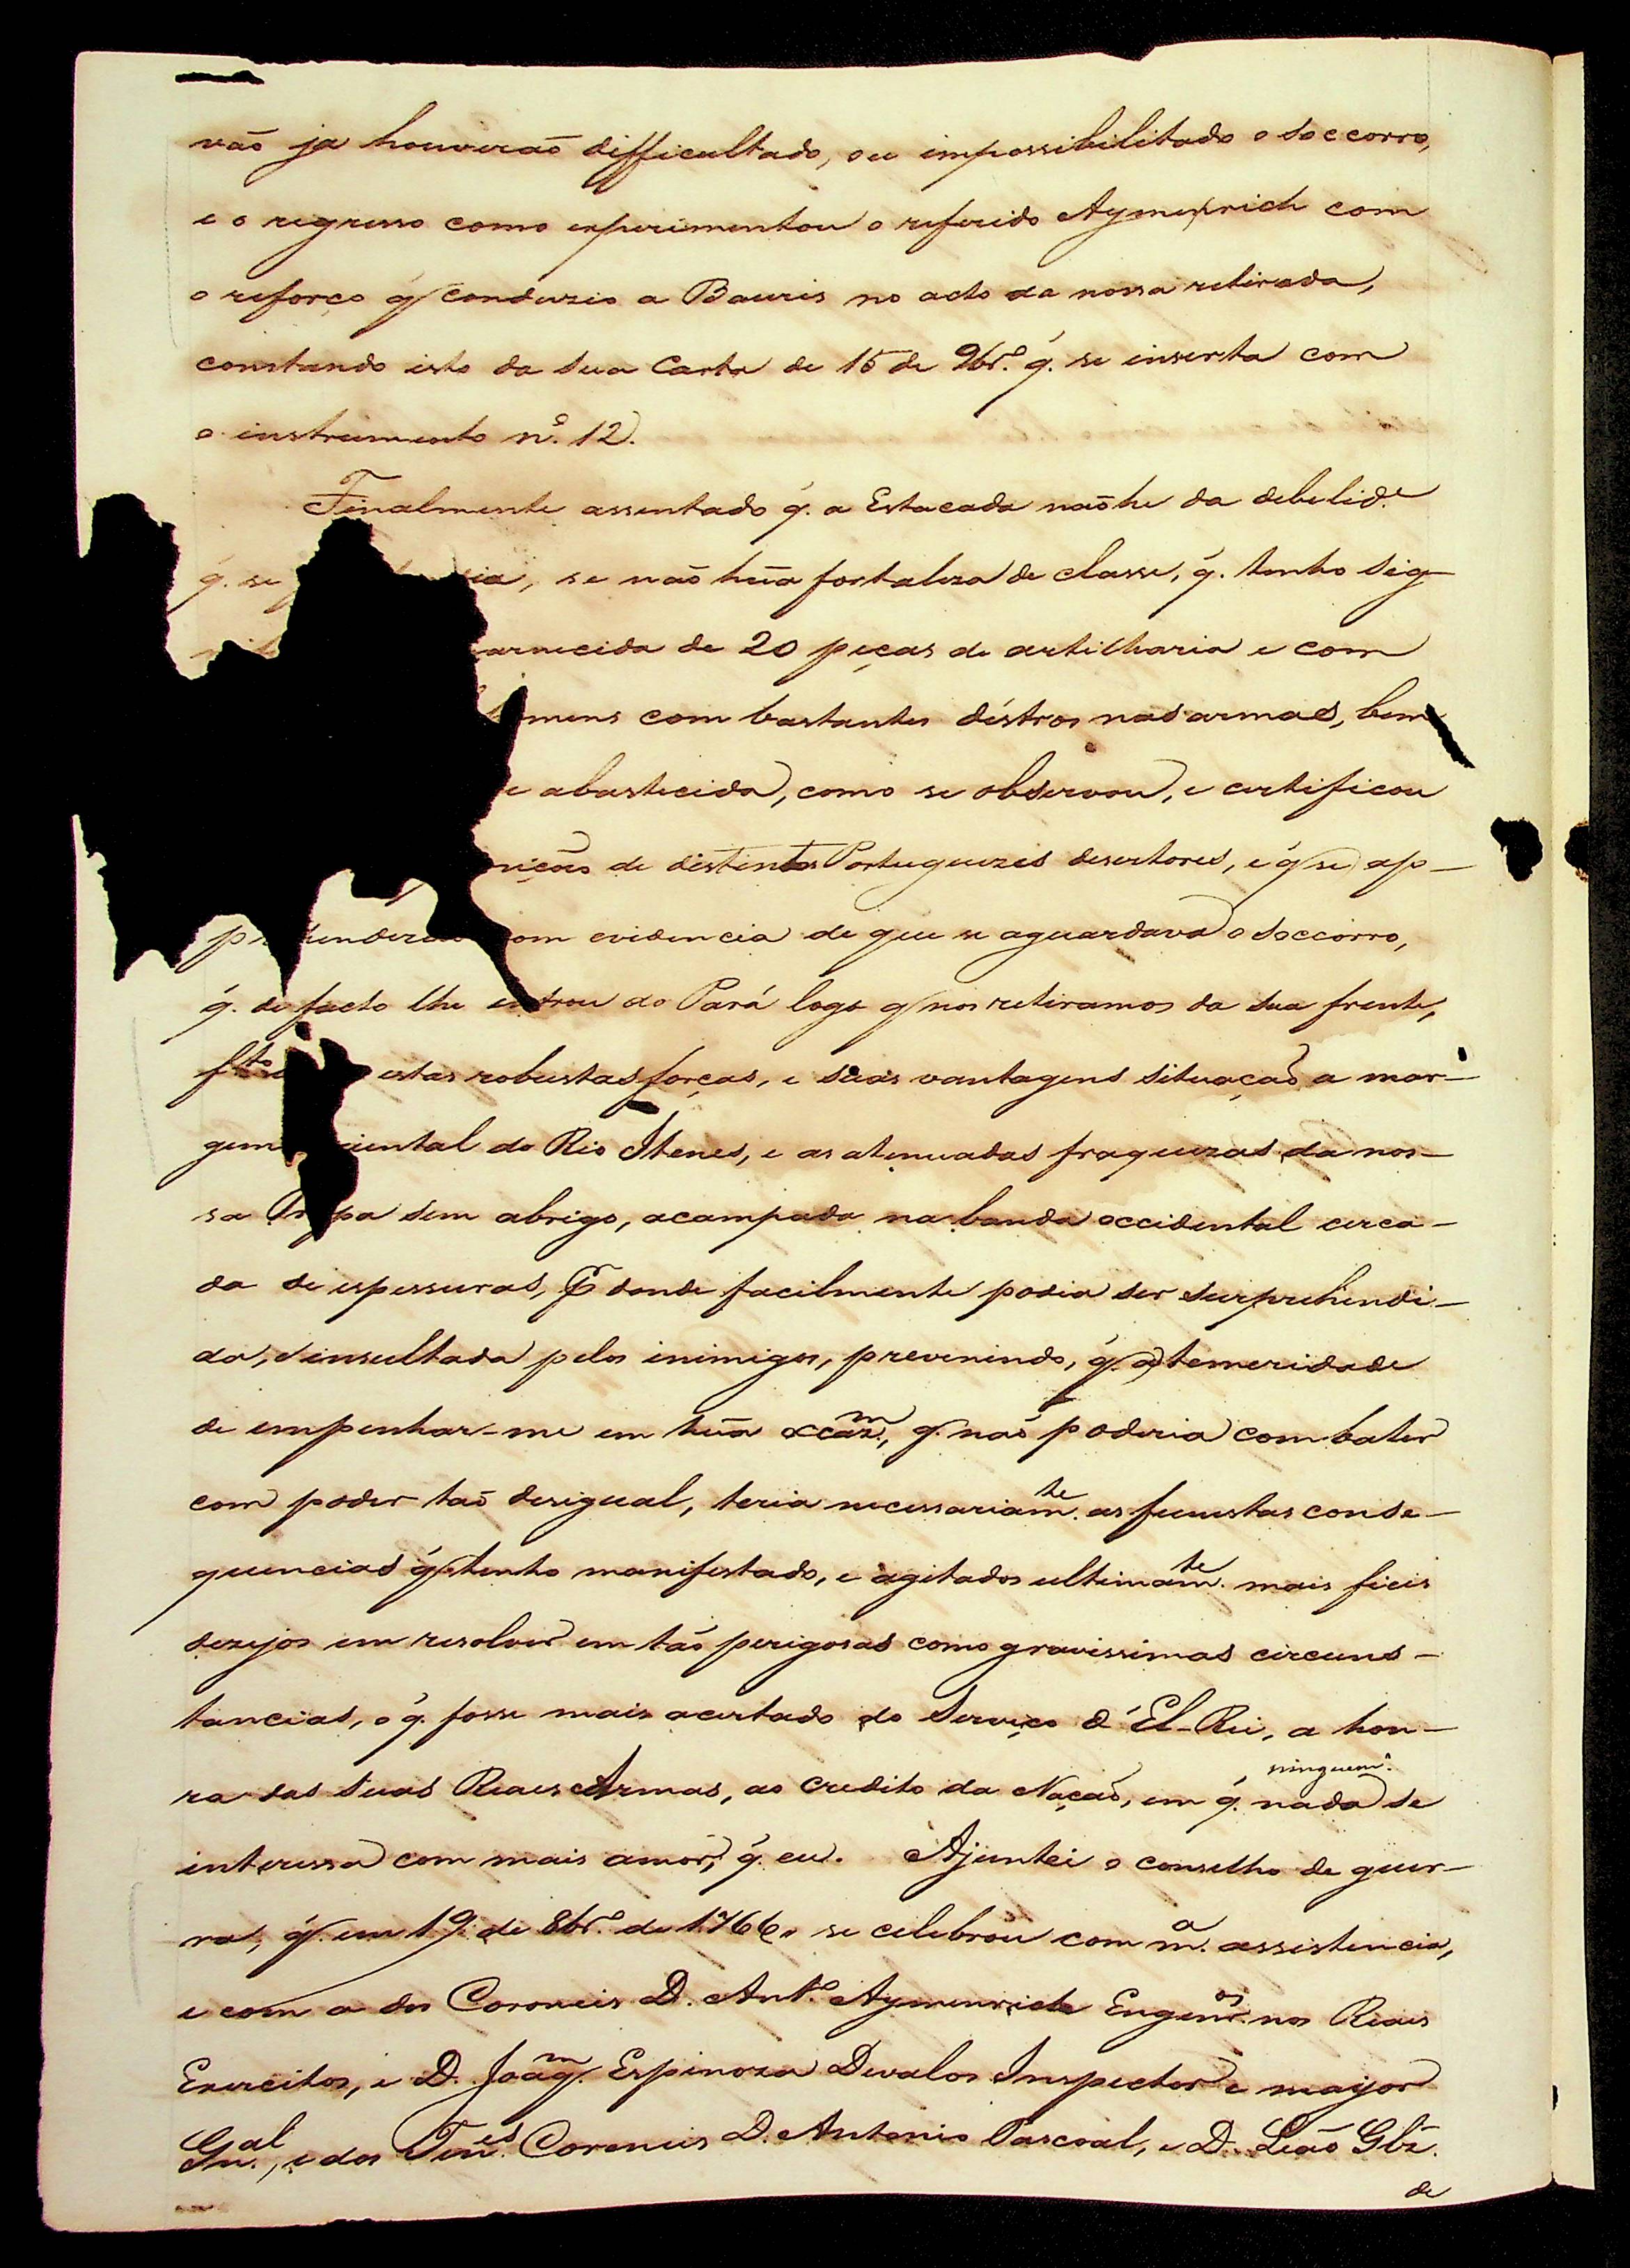 vaõ ja houveraõ difficultado, ou impossibilitado o soccorro,
e o regresso como experimentou o referido Aymerich com
o reforço q̃ conduzio a Bauris no acto da nossa retirada,
constando isto da sua Carta de 15 de 9br.º q̃. se inserta com
o instrumento n.º 12.
Finalmente assentado q̃. a Estacada naõ he da debelid.e
q̃. se sia, se naõ hũa fortaleza de classe, q̃. tenho sig-
arnecida de 20 peças de artilharia e com
omens com bastantes déstros nas armas, bem
e abastecida, como se observou, e certificou
niçoẽs de distintos Portuguezes desertores, e q̃ se ap-
p enderaõ com evidencia de que se aguardava o soccorro,
q̃. de facto lhe entrou do Pará logo q̃ nos retiramos da sua frente,
estas robustas forças, e suas vantagens situaçaõ a mar-
gem iental do Rio Itenes, e as atenuadas fraquezas da nos-
sa Tropa sem abrigo, acampada na banda occidental cerca-
da de espessuras, p.r donde facilmente podia ser surprehendi-
da, e insultada pelos inimigos, prevenindo, q̃. a temeridade
de empenhar-me em hũa q̃. naõ poderia combater
com poder taõ desigual, teria necessariam.te as funestas conse-
quencias q̃ tenho manifestado, e agitados ultimam.te mais fieis
dezejos em resolver em taõ perigosas como gravissimas circuns-
tancias, o q̃. fosse mais acertado do Serviço d'El-Rei, a hon-
ra das suas Reaes Armas, ao credito da Naçaõ, em q̃. nada se
ninguem.
interessa com mais amor, q̃. eu. Ajuntei o conselho de guer-
ra, q̃. em 19 de 8br.º de 1766 se celebrou com m.a assistencia,
e com a dos Coroneis D. Ant.º Aymerich Engenr.os nos Reais
Exercitos, e D. Joaq.m Espinoza Devalos Inspector e mayor
Gn.al, e dos Ten.es Coroneis D. Antonio Pascoal, e D. Leaõ Glz̃.
de